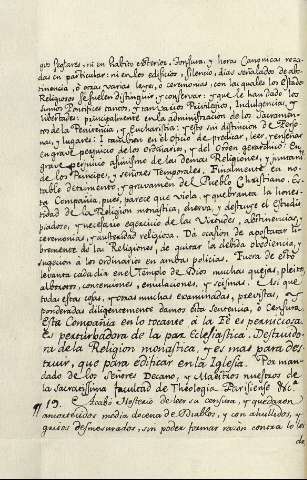 gio Seglares, ni en habito exterior, Tonsura, y horas Canonicas reza-
das en particular: ni en los edificios, silencio, dias señalados de abs-
tinencia, ò otras varias leyes, o ceremonias, con las quales los Estados
Religiosos se suelen distinguir, y conservar: y que le han dado los
Sumos Pontifices tantos, y tan varios Privilegios, Indulgencias, y
libertades: principalmente en la administracion de los Sacramen-
tos de la Penitencia, y Eucharistia: y esto sin distincion de Perso-
nas, y lugares: i tambien en el oficio de predicar, leer, y enseñar
en grave perjuicio de los Ordinarios, y del Orden gerarchico. En
grave perjuicio asimismo de las demas Religiones, y juntamente
de los Principes, y señores Temporales. Finalmente en no-
table detrimento, y gravamen del Pueblo Christiano. Es-
ta Compañia, pues, parece que viola, y quebranta la hones-
tidad de la Religion monastica, enerva, y destruye el Estudio
piadoso, y necesario egercicio de las Virtudes, abstinencias,
ceremonias, y austeridad religiosa. Dà ocasion de apostatar li-
bremente de las Religiones, de quitar la debida obediencia, y
sugecion à los ordinarios en ambas policias. Fuera de esto
levanta cada dia en el Templo de Dios muchas quejas, pleytos,
alborotos, contenciones, emulaciones, y scismas. Asi que
todas estas cosas, y otras muchas examinadas, previstas, y
ponderadas diligentemente damos esta Sentencia, ò Censura
Esta Compañia en lo tocante à la Fè es perniciosa.
Es perturbadora de la paz Eclesiastica. Destruido-
ra de la Religion monastica, y es mas para des-
truir, que para edificar en la Iglesia. Por man-
dado de los Señores Decano, y Maestros nuestros de
la Sacratissima facultad de Theologia Parisiense &c.
12 Acabò Hosterio de leer su censura, y quedaron
amortecidos media docena de Diablos, y con ahullidos, y
gritos desmesurados, sin poder formar razon contra lo
de